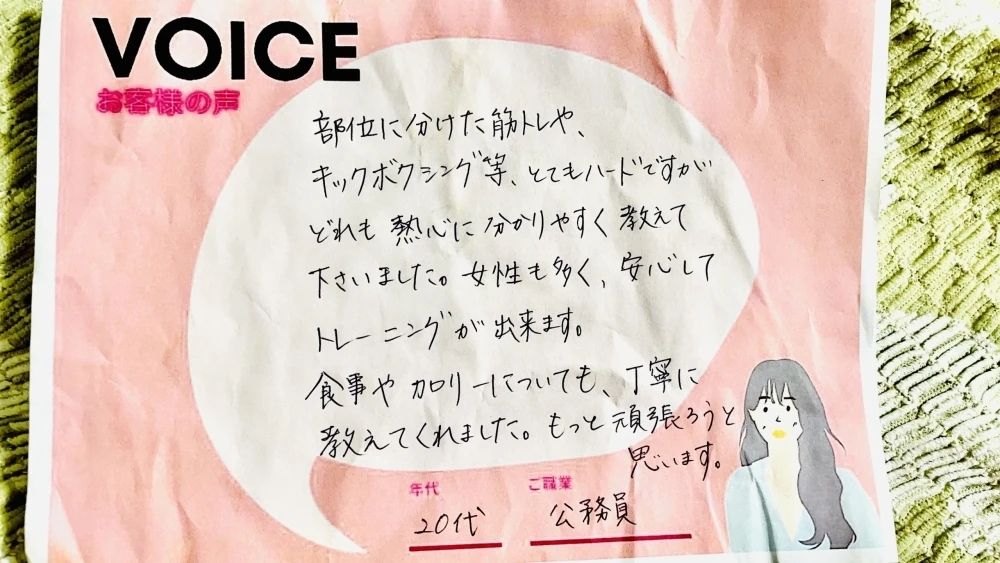 VOICE
お客様の声
部位に分けた筋トレや、
キックボクシング等、とてもハードですが
どれも熱心に分かりやすく教えて
下さいました。女性も多く、安心して
トレーニングが出来ます。
食事やカロリーについても、丁寧に
教えてくれました。もっと頑張ろうと
思います。
年代
20代
ご職業
公務員